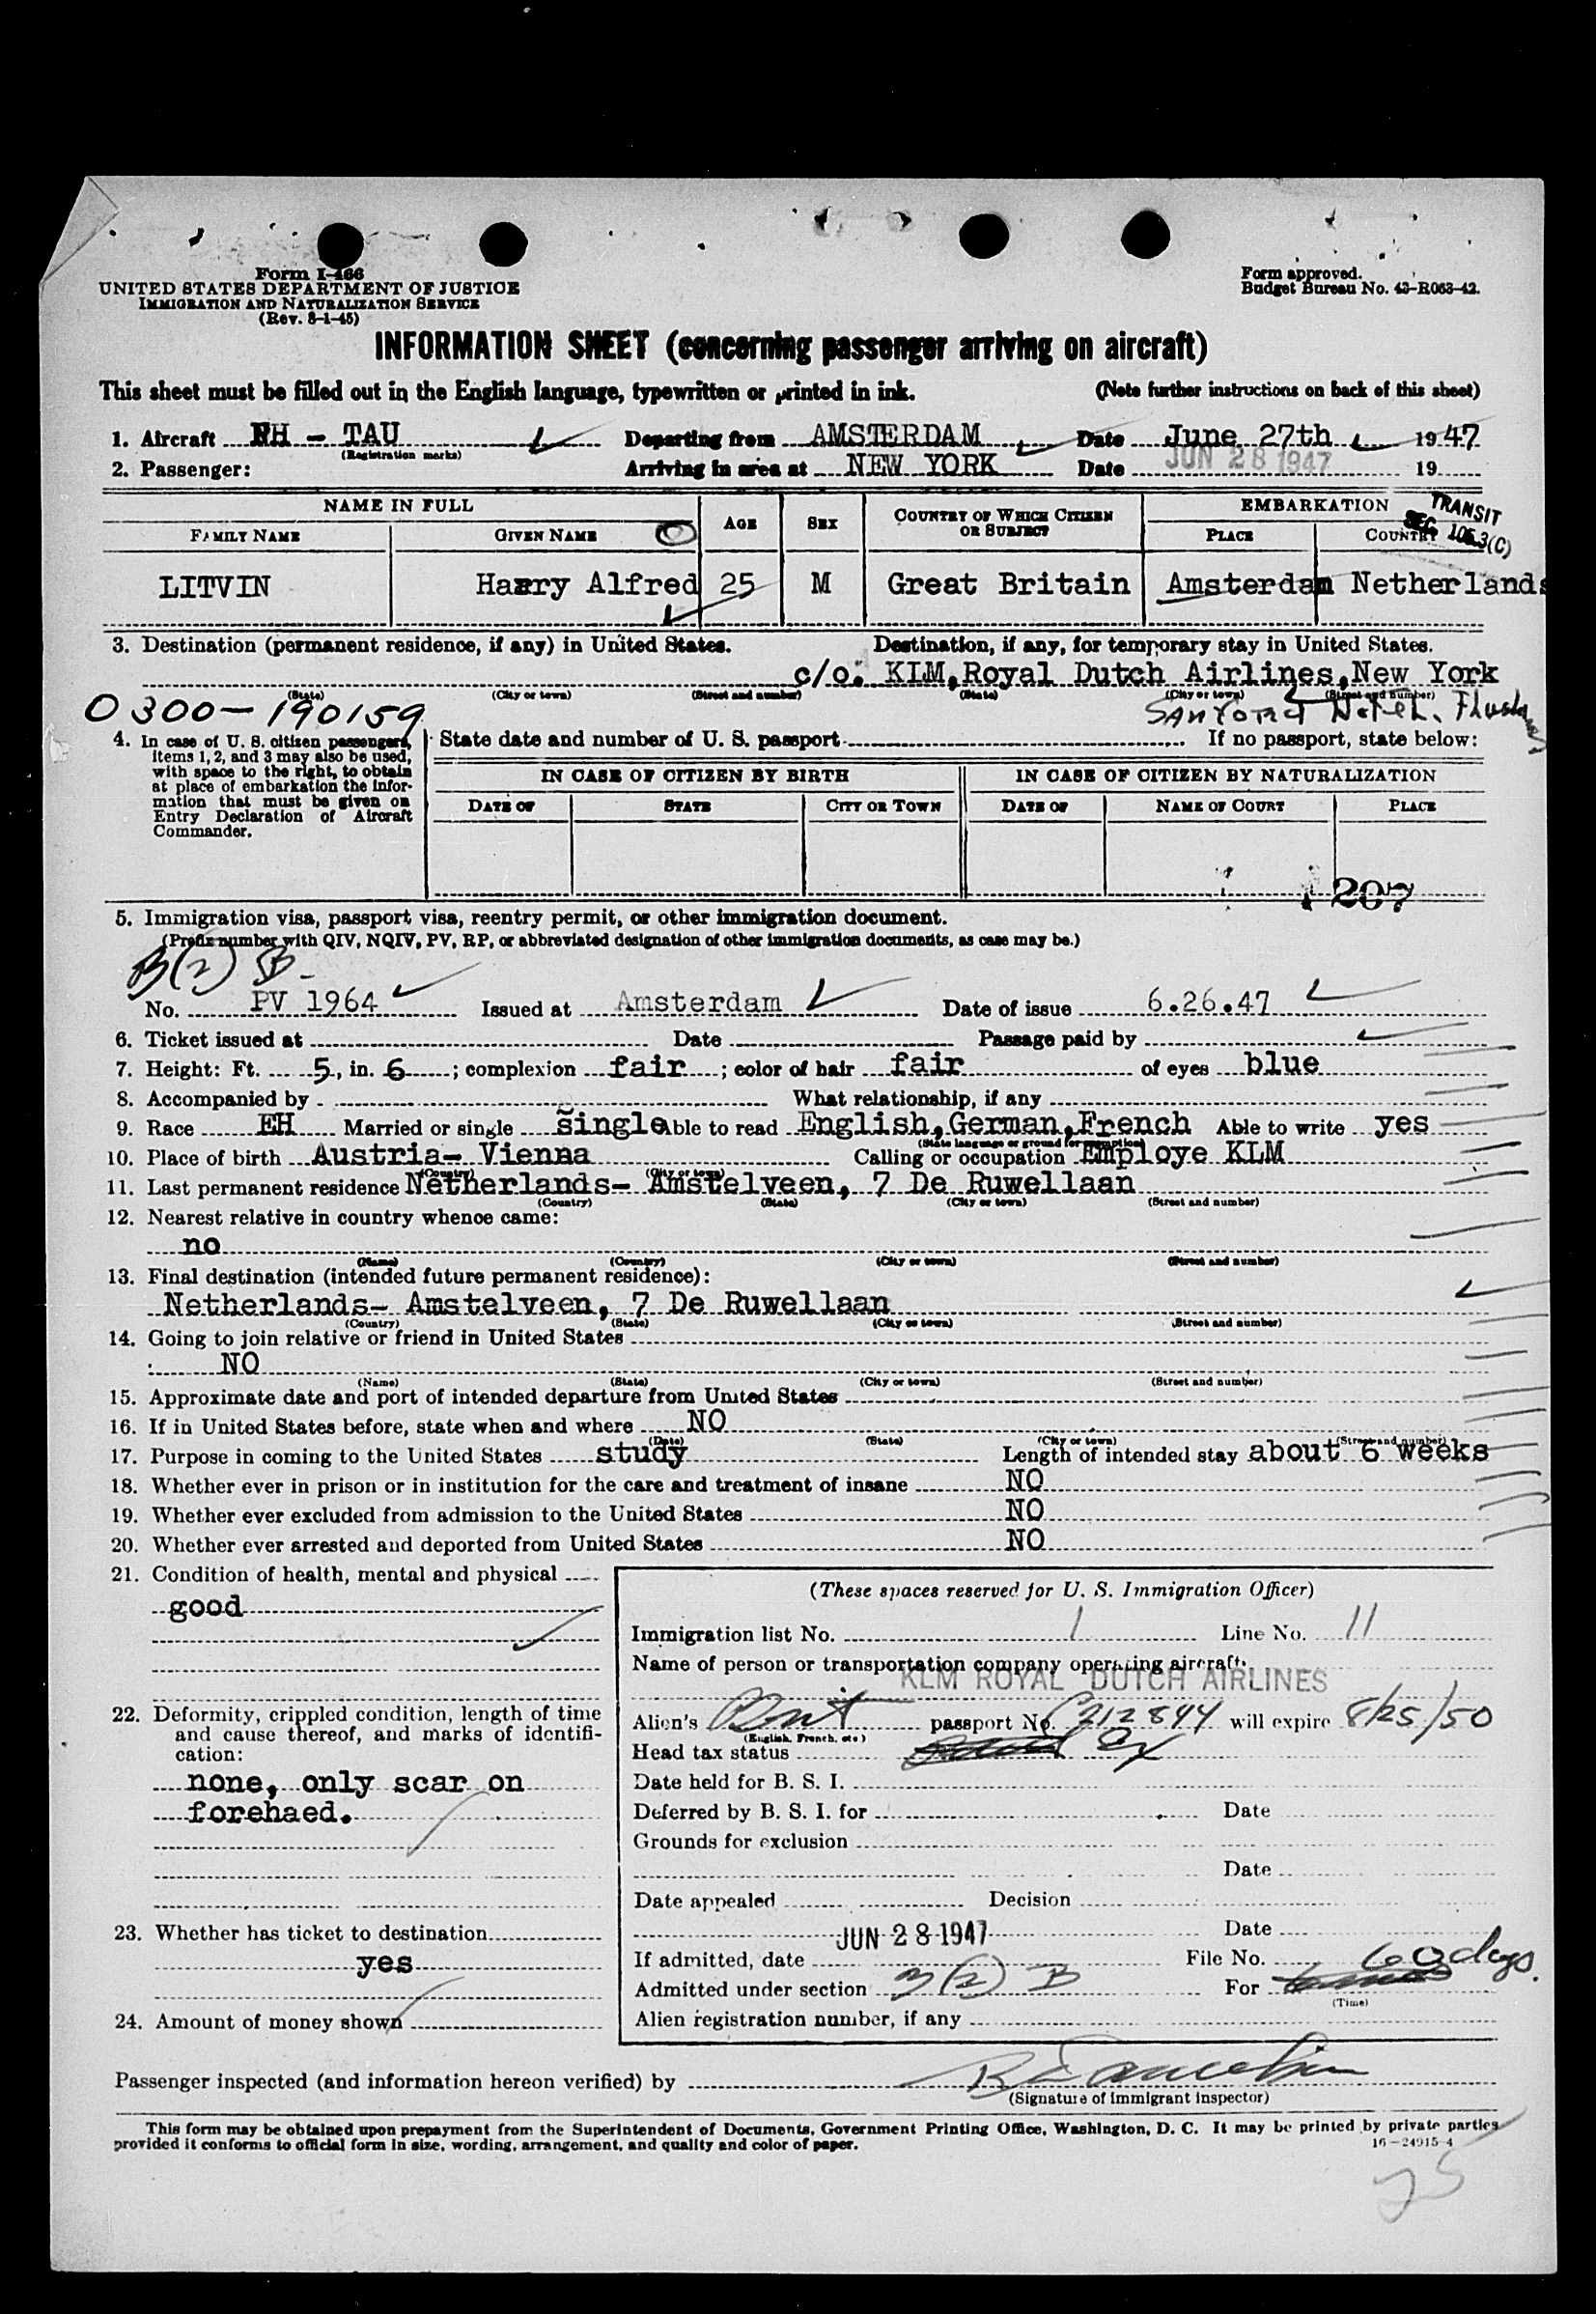 Form I-466
UNITED STATES DEPARTMENT OF JUSTICE
IMMIGRATION AND NATURALIZATION SERVICE
(Rev. 8-1-45)
Form approved.
Budget Bureau No. 43-R063-42.
INFORMATION SHEET (concerning passenger arriving on aircraft)
This sheet must be filled out in the English language, typewritten or printed in ink. (Note further instructions on back of this sheet)
1. Aircraft PH - TAU Departing from AMSTERDAM Date June 27th 1947
(Registration marks)
2. Passenger: Arriving in area at NEW YORK Date JUN 28 1947 19
NAME IN FULL AGE SEX COUNTRY OF WHICH CITIZEN OR SUBJECT EMBARKATION
TRANSIT SEC 105.3(C)
FAMILY NAME GIVEN NAME PLACE COUNTRY
LITVIN Harry Alfred 25 M Great Britain Amsterdam Netherlands
3. Destination (permanent residence, if any) in United States. Destination, if any, for temporary stay in United States.
c/o. KLM, Royal Dutch Airlines, New York
(State) (City or town) (Street and number) (State) (City or town) (Street and number)
0300-190159 Sanford Hotel. Flushing
4. In case of U. S. citizen passengers, items 1, 2, and 3 may also be used, with space to the right, to obtain at place of embarkation the information that must be given on Entry Declaration of Aircraft Commander.
State date and number of U. S. passport If no passport, state below:
IN CASE OF CITIZEN BY BIRTH IN CASE OF CITIZEN BY NATURALIZATION
DATE OF STATE CITY OR TOWN DATE OF NAME OF COURT PLACE
207
5. Immigration visa, passport visa, reentry permit, or other immigration document.
(Prefix number with QIV, NQIV, PV, RP, or abbreviated designation of other immigration documents, as case may be.)
3(2) B
No. PV 1964 Issued at Amsterdam Date of issue 6.26.47
6. Ticket issued at Date Passage paid by
7. Height: Ft. 5, in. 6; complexion fair; color of hair fair of eyes blue
8. Accompanied by What relationship, if any
9. Race EH Married or single single Able to read English, German, French Able to write yes
(State language or ground for exemption)
10. Place of birth Austria- Vienna Calling or occupation Employe KLM
(Country) (City or town)
11. Last permanent residence Netherlands- Amstelveen, 7 De Ruwellaan
(Country) (State) (City or town) (Street and number)
12. Nearest relative in country whence came:
no
(Name) (Country) (City or town) (Street and number)
13. Final destination (intended future permanent residence):
Netherlands- Amstelveen, 7 De Ruwellaan
(Country) (State) (City or town) (Street and number)
14. Going to join relative or friend in United States
NO
(Name) (State) (City or town) (Street and number)
15. Approximate date and port of intended departure from United States
16. If in United States before, state when and where NO
(Date) (State) (City or town) (Street and number)
17. Purpose in coming to the United States study Length of intended stay about 6 weeks
18. Whether ever in prison or in institution for the care and treatment of insane NO
19. Whether ever excluded from admission to the United States NO
20. Whether ever arrested and deported from United States NO
21. Condition of health, mental and physical
good
22. Deformity, crippled condition, length of time and cause thereof, and marks of identification:
none, only scar on
forehaed.
23. Whether has ticket to destination
yes
24. Amount of money shown
(These spaces reserved for U. S. Immigration Officer)
Immigration list No. 1 Line No. 11
Name of person or transportation company operating aircraft.
KLM ROYAL DUTCH AIRLINES
Alien's Brit passport No. C212844 will expire 8/25/50
(English, French, etc.)
Head tax status Ex
Date held for B. S. I.
Deferred by B. S. I. for Date
Grounds for exclusion
Date
Date appealed Decision
JUN 28 1947 Date
If admitted, date File No.
60 days.
Admitted under section 3(2) B For
(Time)
Alien registration number, if any
Passenger inspected (and information hereon verified) by
(Signature of immigrant inspector)
This form may be obtained upon prepayment from the Superintendent of Documents, Government Printing Office, Washington, D. C. It may be printed by private parties
provided it conforms to official form in size, wording, arrangement, and quality and color of paper. 16-24915-4
25